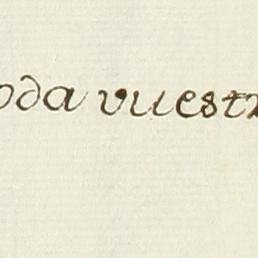 oda vuestr